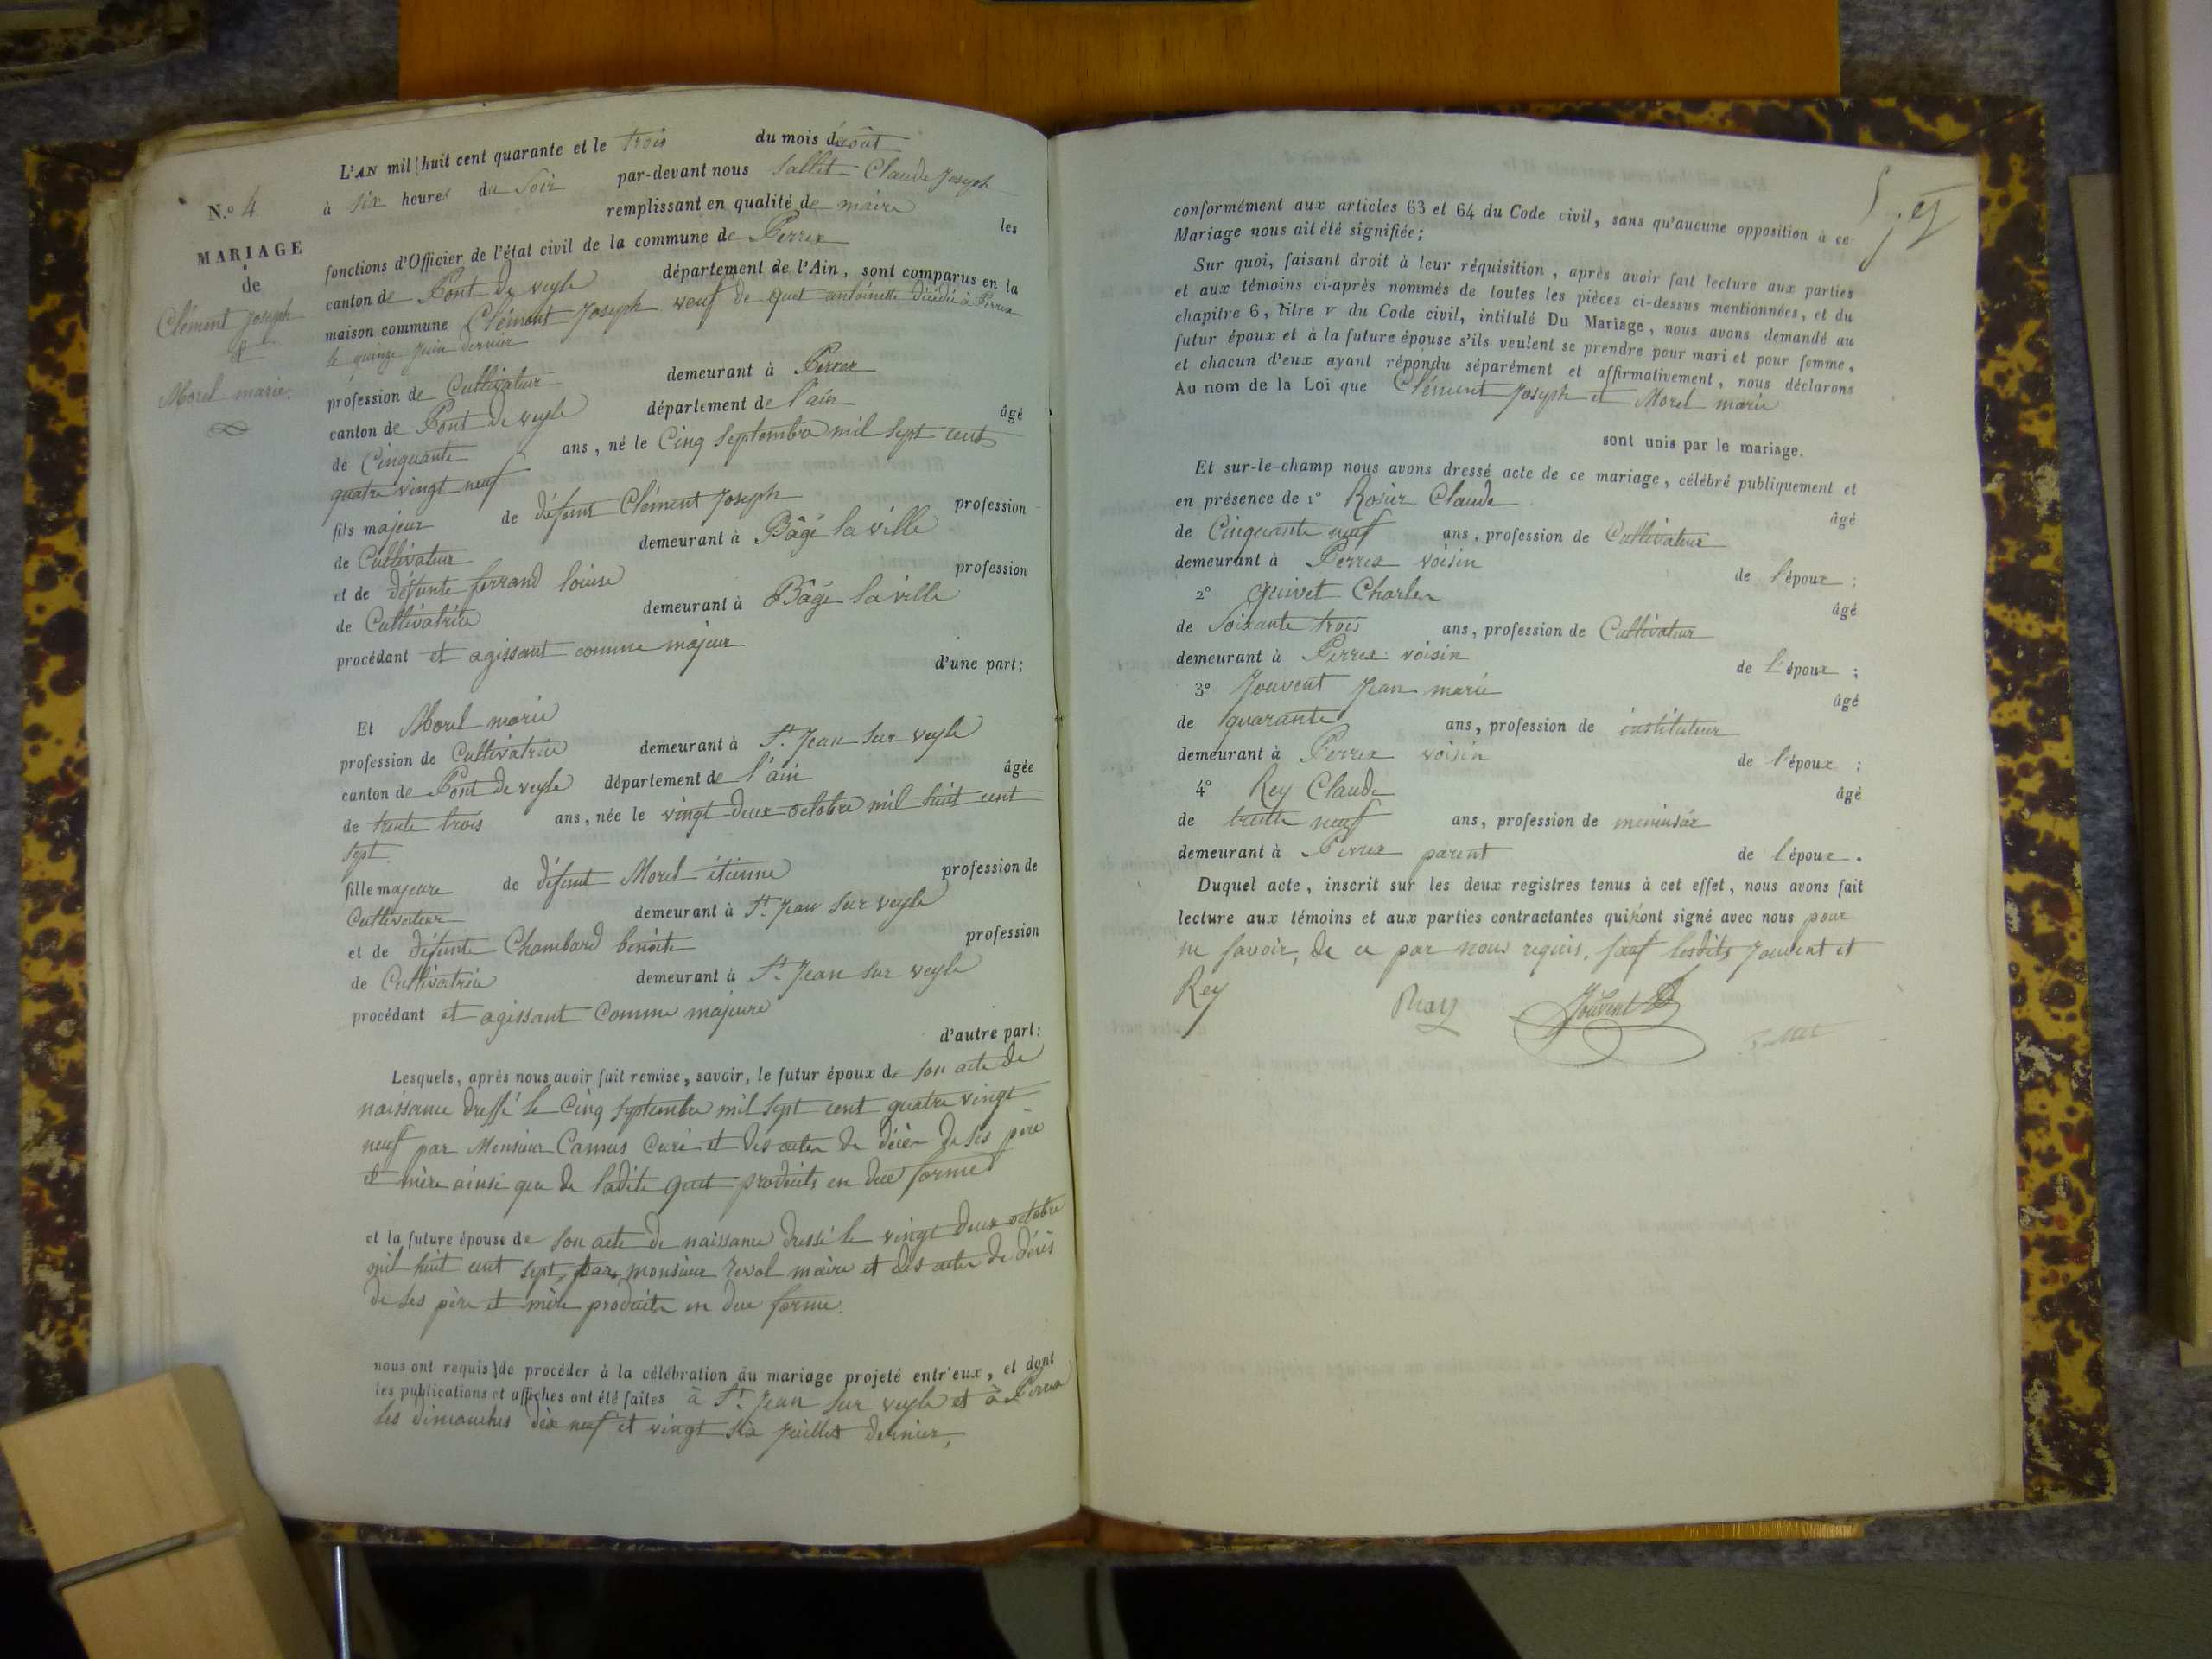 N.º 4
MARIAGE
de
Clément Joseph
&
Morel marie.
L'AN mil huit cent quarante et le trois du mois d'août
à six heures du soir par-devant nous Sallet Claude Joseph
remplissant en qualité de maire les
fonctions d'Officier de l'état civil de la commune de Perrex
canton de Pont de veyle département de l'Ain, sont comparus en la
maison commune Clément Joseph veuf de guet antoinette décédée à Perrex
le quinze Juin dernier
profession de Cultivateur demeurant à Perrex
canton de Pont de veyle département de l'ain âgé
de Cinquante ans, né le Cinq Septembre mil sept cent
quatre vingt neuf
fils majeur de défunt Clément Joseph profession
de Cultivateur demeurant à Bâgé la ville
et de défunte ferrand louise profession
de Cultivatrice demeurant à Bâgé la ville
procédant et agissant comme majeur
d'une part;
Et Morel marie
profession de Cultivatrice demeurant à St. Jean sur veyle
canton de Pont de veyle département de l'ain âgée
de trente trois ans, née le vingt deux octobre mil huit cent
sept
fille majeure de défunt Morel étienne profession de
Cultivateur demeurant à St. Jean sur veyle
et de défunte Chambard benoite profession
de Cultivatrice demeurant à St. Jean sur veyle
procédant et agissant comme majeure
d'autre part:
Lesquels, après nous avoir fait remise, savoir, le futur époux de son acte de
naissance dressé le Cinq septembre mil sept cent quatre vingt
neuf par Monsieur Camus Curé et des actes de décès de ses père
et mère ainsi que de ladite guet produits en due forme
et la future épouse de son acte de naissance dressé le vingt deux octobre
mil huit cent sept, par monsieur revol maire et des actes de décès
de ses père et mère produits en due forme.
nous ont requis de procéder à la célébration du mariage projeté entr'eux, et dont
les publications et affiches ont été faites à St. Jean sur veyle et à Perrex
les dimanches dix neuf et vingt six Juillet dernier,
conformément aux articles 63 et 64 du Code civil, sans qu'aucune opposition à ce
Mariage nous ait été signifiée;
Sur quoi, faisant droit à leur réquisition, après avoir fait lecture aux parties
et aux témoins ci-après nommés de toutes les pièces ci-dessus mentionnées, et du
chapitre 6, titre v du Code civil, intitulé Du Mariage, nous avons demandé au
futur époux et à la future épouse s'ils veulent se prendre pour mari et pour femme,
et chacun d'eux ayant répondu séparément et affirmativement, nous déclarons
Au nom de la Loi que Clément Joseph et Morel marie
sont unis par le mariage.
Et sur-le-champ nous avons dressé acte de ce mariage, célébré publiquement et
en présence de 1º Rosier Claude
âgé
de Cinquante neuf ans, profession de Cultivateur
demeurant à Perrex voisin de l'époux;
2º guivet Charles
âgé
de Soixante trois ans, profession de Cultivateur
demeurant à Perrex voisin de l'époux;
3º Jouvent Jean marie
âgé
de quarante ans, profession de instituteur
demeurant à Perrex voisin de l'époux;
4º Rey Claude âgé
de trente neuf ans, profession de menuisier
demeurant à Perrex parent de l'époux.
Duquel acte, inscrit sur les deux registres tenus à cet effet, nous avons fait
lecture aux témoins et aux parties contractantes qui n'ont signé avec nous pour
ne savoir, de ce par nous requis, sauf lesdits Jouvent et
Rey
Rey Jouvent Sallet